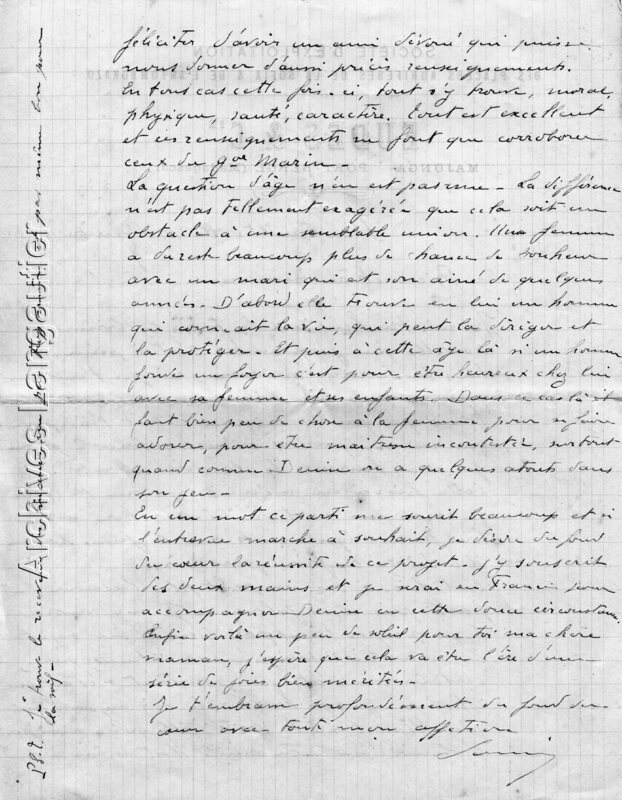 féliciter d'avoir un ami dévoué qui puisse
nous donner d'aussi précis renseignements.
En tous cas cette fois-ci, tout s'y trouve, moral,
physique, santé, caractère. Tout est excellent
et ces renseignements ne font que corroborer
ceux du gal Marin -
La question d'âge n'en est pas une - La différence
n'est pas tellement exagérée que cela soit un
obstacle à une semblable union. Une femme
a du reste beaucoup plus de chance de bonheur
avec un mari qui est son ainé de quelques
années. D'abord elle trouve en lui un homme
qui connait la vie, qui peut la diriger et
la protéger. Et puis à cette âge là si un homme
fonde un foyer c'est pour être heureux chez lui
avec sa femme et ses enfants. Dans ce cas là il
faut bien peu de chose à la femme pour se faire
adorer, pour être maitresse incontestée, surtout
quand comme Denise on a quelques atouts dans
son jeu -
En un mot ce parti me sourit beaucoup et si
l'entrevue marche à souhait, je désire du fond
du cœur la réussite de ce projet. J'y souscrit
des deux mains et je serai en France pour
accompagner Denise en cette douce circonstance.
Enfin voilà un peu de soleil pour toi ma chère
maman, j'espère que cela va être l'ère d'une
série de joies bien méritées.
Je t'embrasse profondément du fond du
cœur avec toute mon affection
P.S. Je trouve la recette
pas même bon pour